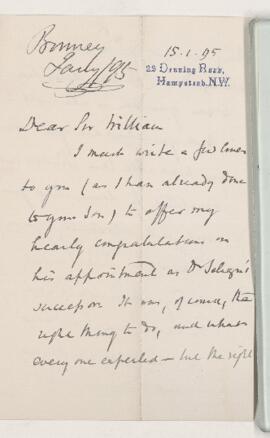 Bonney
Jany/95
15.1.95
23 Denning Road,
Hampstead. N.W.
Dear Sir William
I must write a few lines
to you (as I have already done
to your Son) to offer my
hearty congratulations on
his appointment as Dr Selwyn's
successor. It was, of course, the
right thing to do, and what
every one expected — but the right